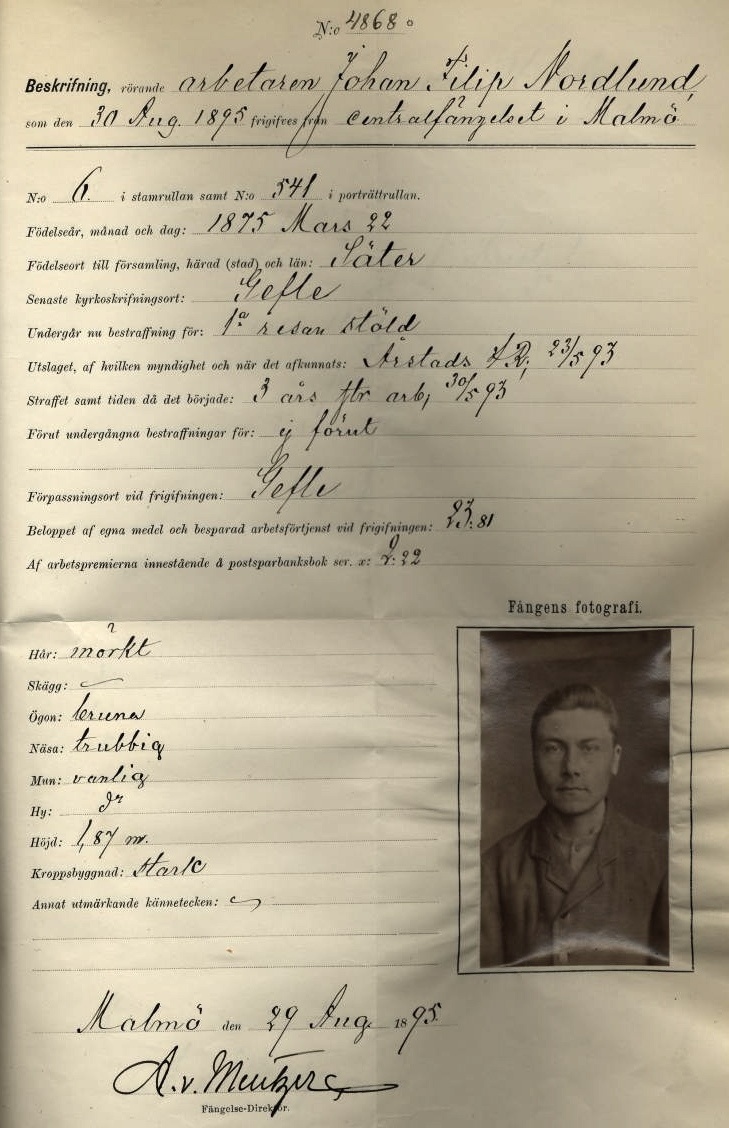 N:o 4868.
Beskrifning, rörande arbetaren Johan Filip Nordlund,
som den 30 Aug. 1895 frigifves från centralfängelset i Malmö
N:o 6. i stamrullan samt N:o 541 i porträttrullan.
Födelseår, månad och dag: 1875 Mars 22
Födelseort till församling, härad (stad) och län: Säter
Senaste kyrkoskrifningsort: Gefle
Undergår nu bestraffning för: 1a resan stöld
Utslaget, af hvilken myndighet och när det afkunnats: Årstads HR, 23/5 93
Straffet samt tiden då det började: 3 års str arb, 30/5 93
Förut undergångna bestraffningar för: ej förut
Förpassningsort vid frigifningen: Gefle
Beloppet af egna medel och besparad arbetsförtjenst vid frigifningen: 23:81
Af arbetspremierna innestående å postsparbanksbok ser. x: 2:22
Fångens fotografi.
Hår: mörkt
Skägg:
Ögon: bruna
Näsa: trubbig
Mun: vanlig
Hy: dr
Höjd: 1,87 m.
Kroppsbyggnad: stark
Annat utmärkande kännetecken:
Malmö den 29 Aug. 1895.
A. v. Mentzer
Fängelse-Direktör.